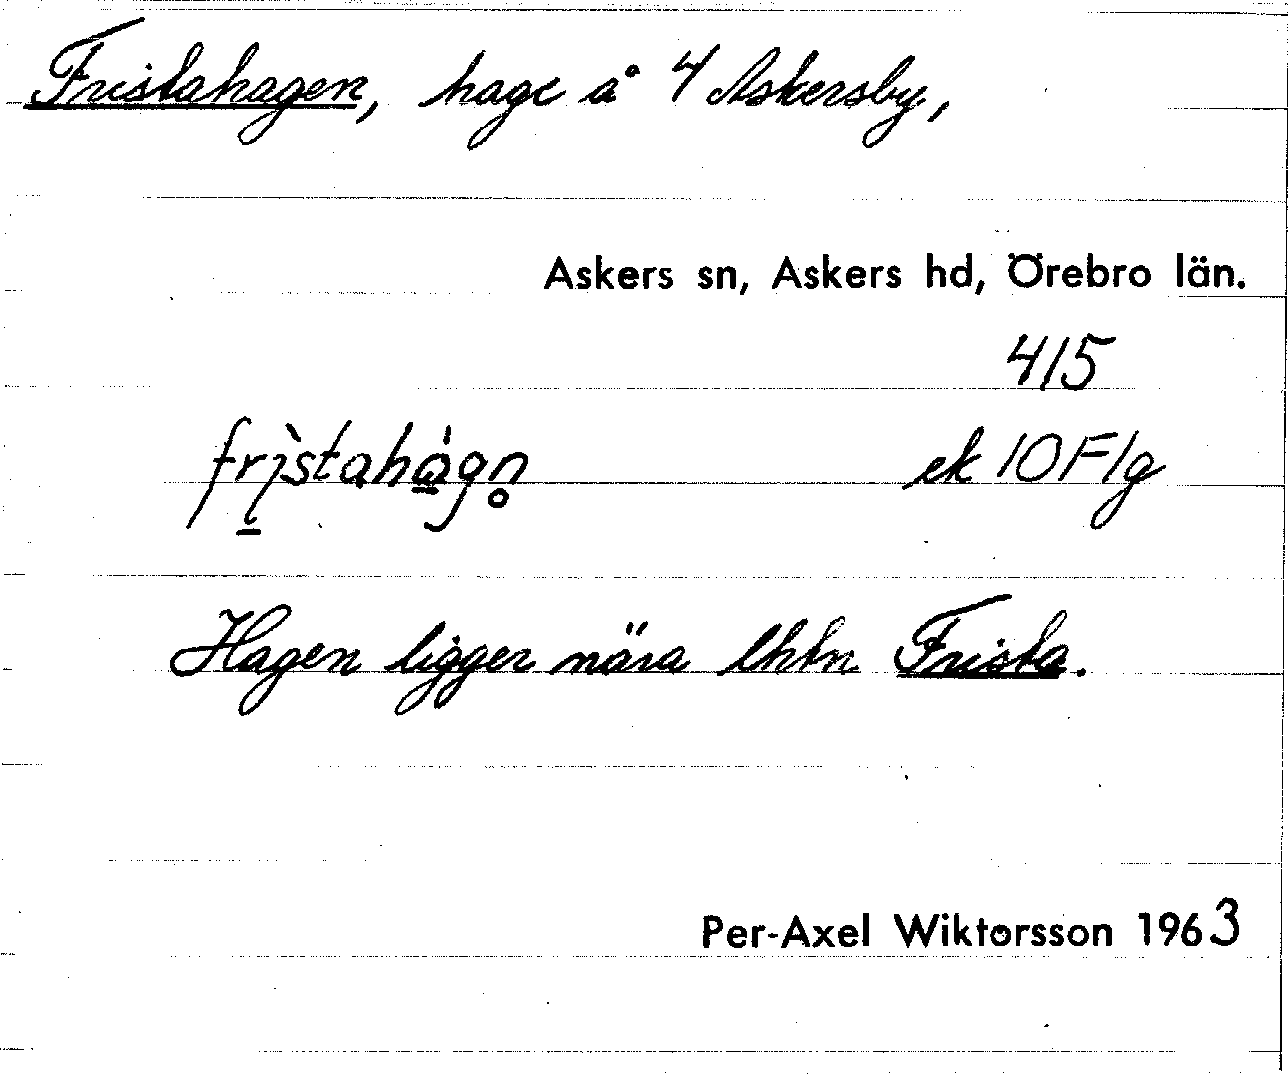 Fristahagen, hage å 4 Askersby,
Askers sn, Askers hd, Örebro län.
415
fri̱staha̱gn̥ ek 10F1g
Hagen ligger nära lhtn Frista.
Per-Axel Wiktorsson 1963